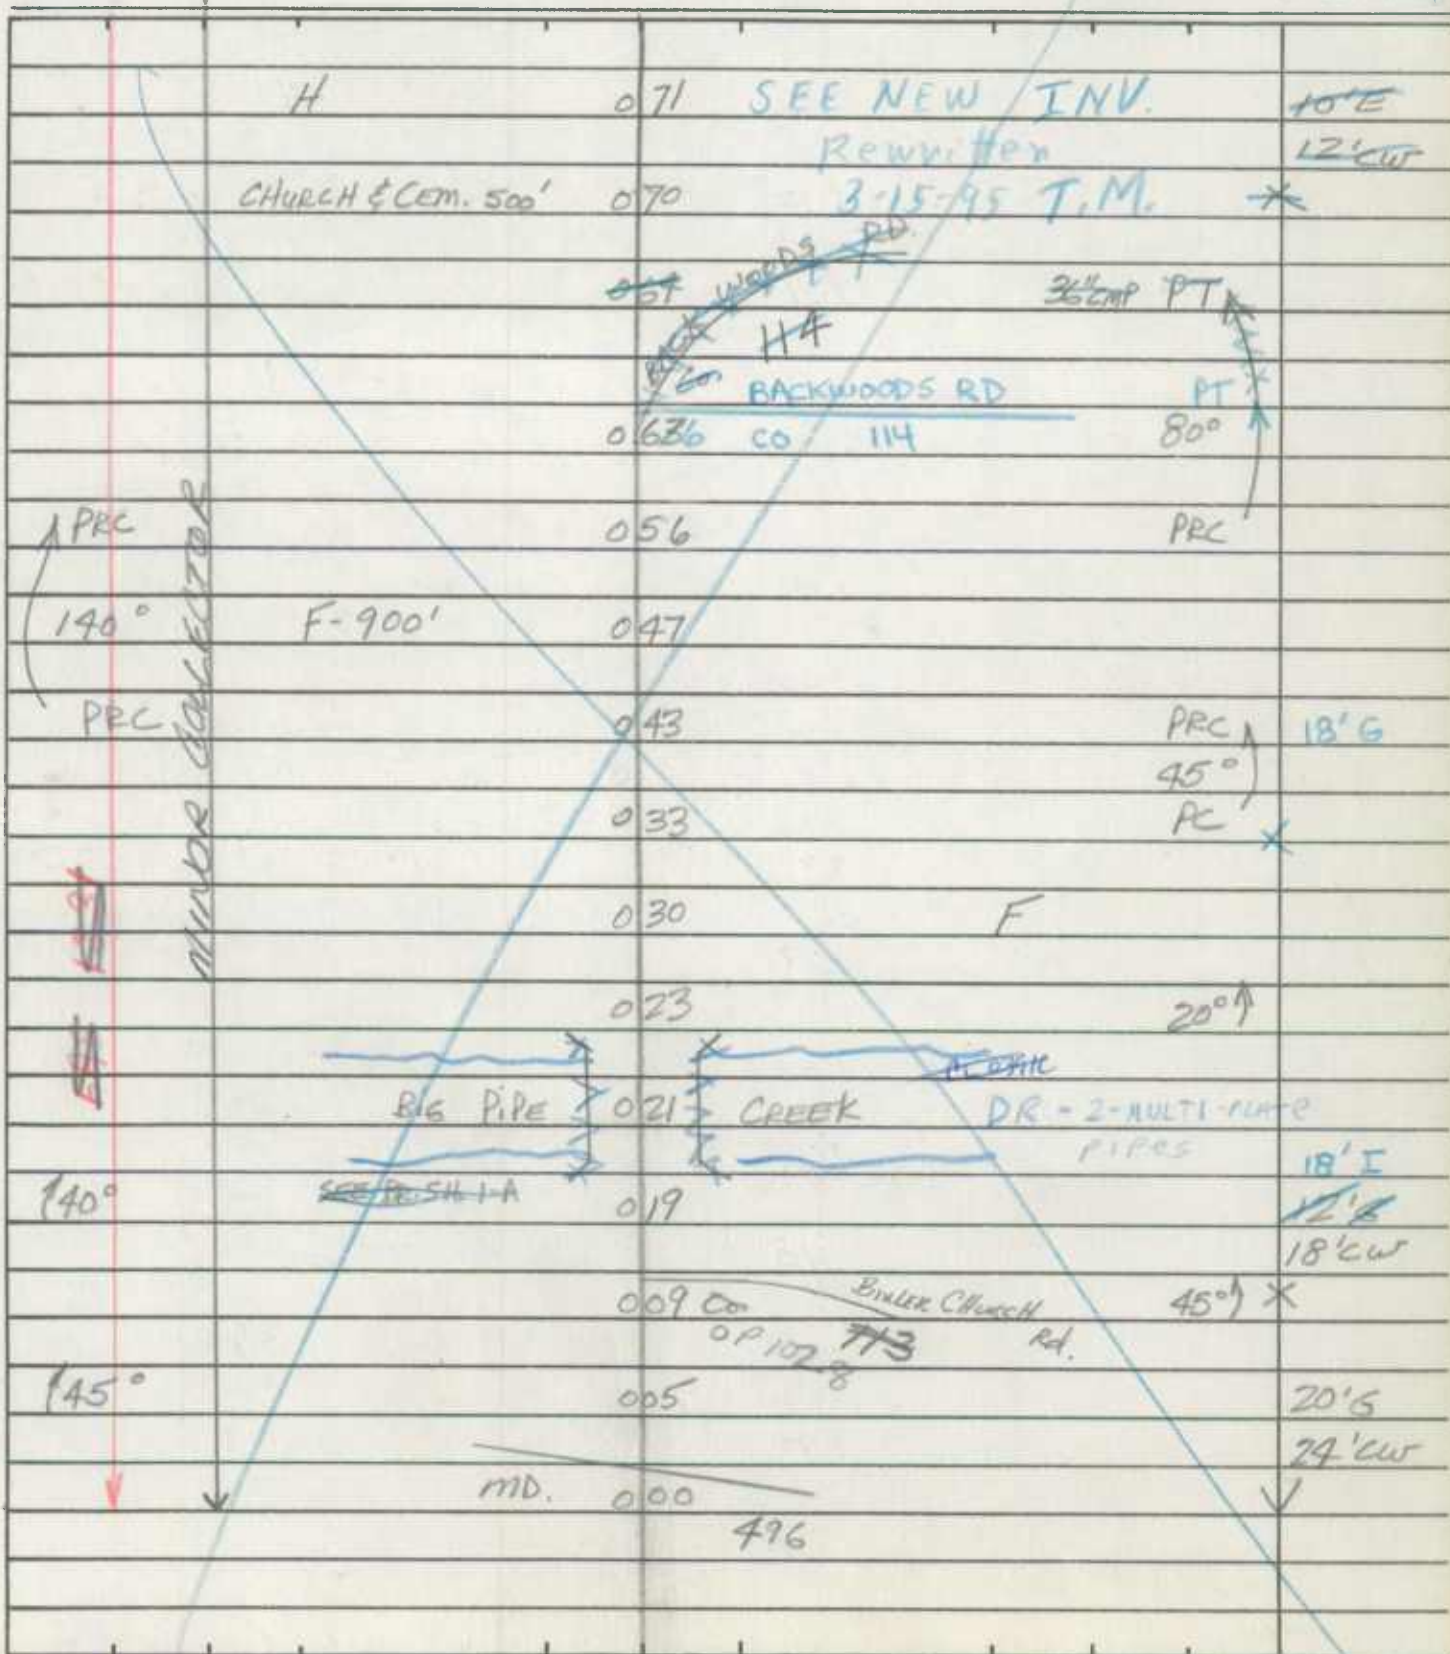 H 0 71 SEE NEW INV. 10'E
Rewritten 12'CW
CHURCH & CEM. 500' 0 70 3-15-95 T.M.
BACK WOODS RD.
36"CMP PT
114
Co BACKWOODS RD PT
0 636 CO 114 80°
PRC 0 56 PRC
140° F-900' 0 47
PRC 0 43 PRC 18'G
45°
0 33 PC
MINOR COLLECTOR
0 30 F
0 23 20°
BIG PIPE 0 21 CREEK DR - 2-MULTI-PLATE
PIPES
18' I
40° SEE PR. SH. 1-A 0 19
18'CW
0 09 Co CHURCH Rd. 45°
OP 102.8 713
45° 0 05 20'G
24'CW
MD. 0 00
496